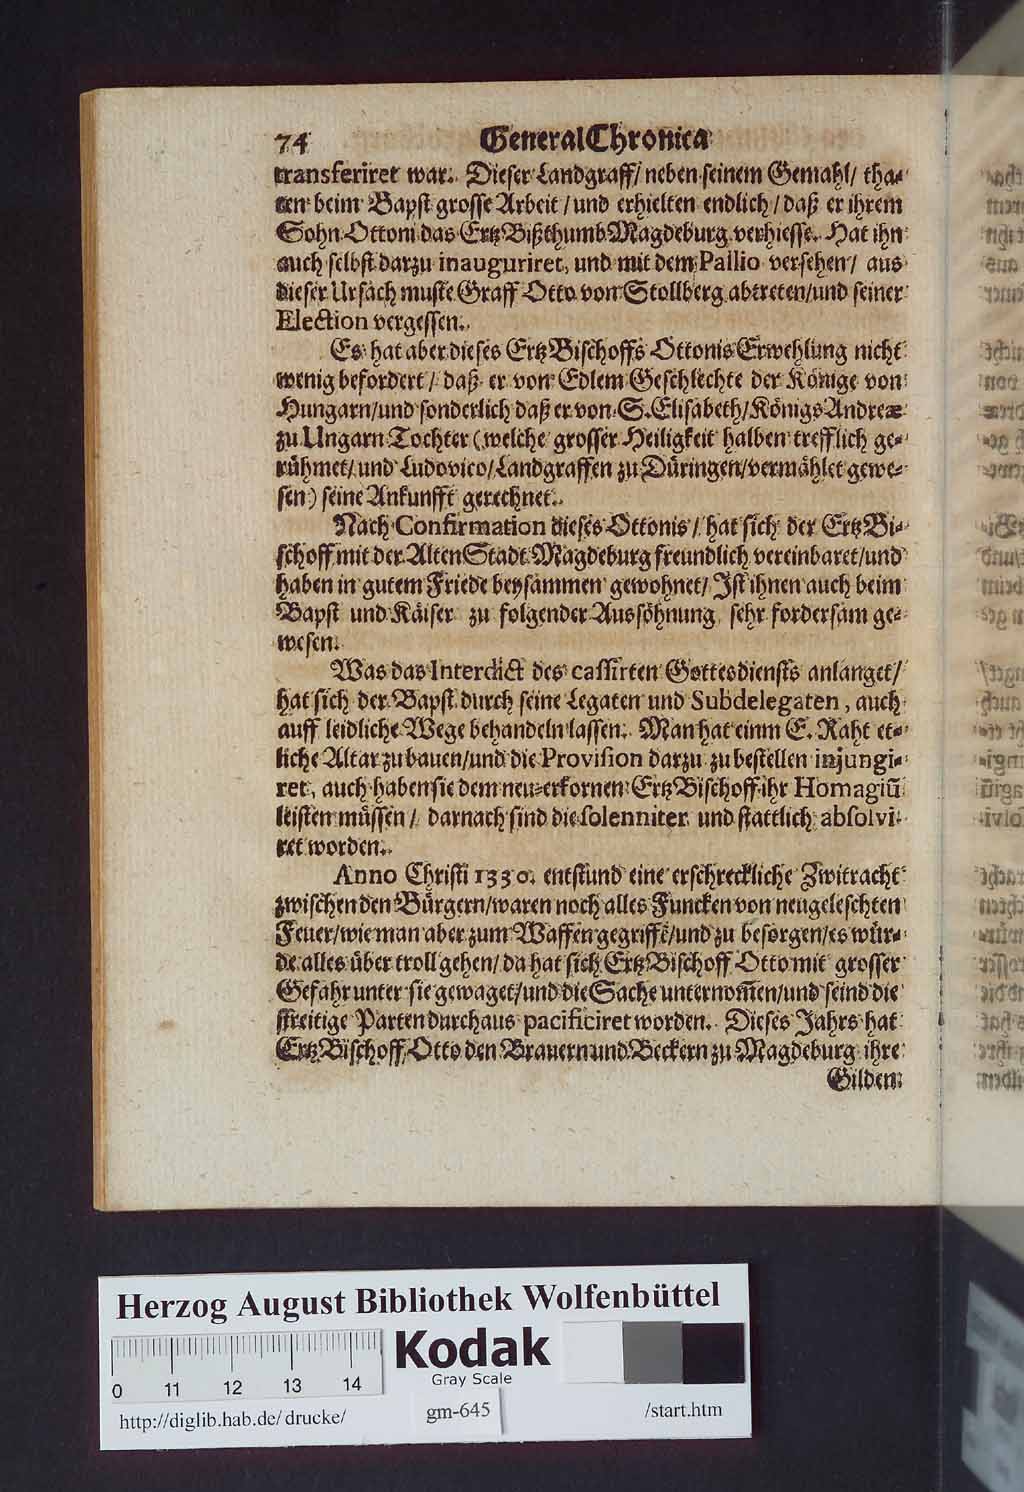 74 General Chronica
transferiret war. Dieser Landgraff/ neben seinem Gemahl/ tha-
ten beim Bapst grosse Arbeit/ und erhielten endlich/ daß er ihrem
Sohn Ottoni das Ertz Bißthumb Magdeburg verhiesse. Hat ihn
auch selbst darzu inauguriret, und mit dem Pallio versehen/ aus
dieser Ursach muste Graff Otto von Stollberg abtreten/ und seiner
Election vergessen.
Es hat aber dieses Ertz Bischoffs Ottonis Erwehlung nicht
wenig befordert/ daß er von Edlem Geschlechte der Könige von
Hungarn/ und sonderlich daß er von S. Elisabeth/ Königs Andreæ
zu Ungarn Tochter (welche grosser Heiligkeit halben trefflich ge-
rühmet/ und Ludovico/ Landgraffen zu Düringen/ vermählet gewe-
sen) seine Ankunfft gerechnet.
Nach Confirmation dieses Ottonis/ hat sich der Ertz Bi-
schoff mit der Alten Stadt Magdeburg freundlich vereinbaret/ und
haben in gutem Friede beysammen gewohnet/ Ist ihnen auch beim
Bapst und Käiser zu folgender Aussöhnung sehr fordersam ge-
wesen.
Was das Interdict des cassirten Gottesdiensts anlanget/
hat sich der Bapst durch seine Legaten und Subdelegaten, auch
auff leidliche Wege behandeln lassen. Man hat einm E. Raht et-
liche Altar zu bauen/ und die Provision darzu zu bestellen injungi-
ret, auch haben sie dem neu-erkornen Ertz Bischoff ihr Homagiũ
leisten müssen/ darnach sind die solenniter und stattlich absolvi-
ret worden.
Anno Christi 1330. entstund eine erschreckliche Zwitracht
zwischen den Bürgern/ waren noch alles Funcken von neugeleschten
Feuer/ wie man aber zum Waffen gegriffẽ/ und zu besorgen/ es wür-
de alles über troll gehen/ da hat sich Ertz Bischoff Otto mit grosser
Gefahr unter sie gewaget/ und die Sache unternom̃en/ und seind die
streitige Parten durchaus pacificiret worden. Dieses Jahrs hat
Ertz Bischoff Otto den Brauern und Beckern zu Magdeburg ihre
Gilden
Herzog August Bibliothek Wolfenbüttel
Kodak
Gray Scale
0 11 12 13 14
http://diglib.hab.de/drucke/ gm-645 /start.htm